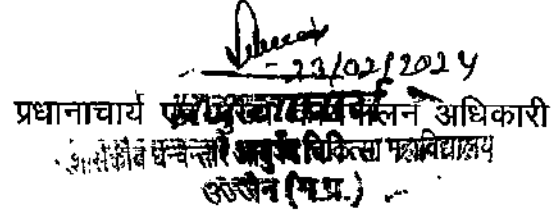 23/02/2024
प्रधानाचार्य एवं मुख्य कार्यपालन अधिकारी
शासकीय धन्वन्तरि आयुर्वेद चिकित्सा महाविद्यालय
उज्जैन (म.प्र.)